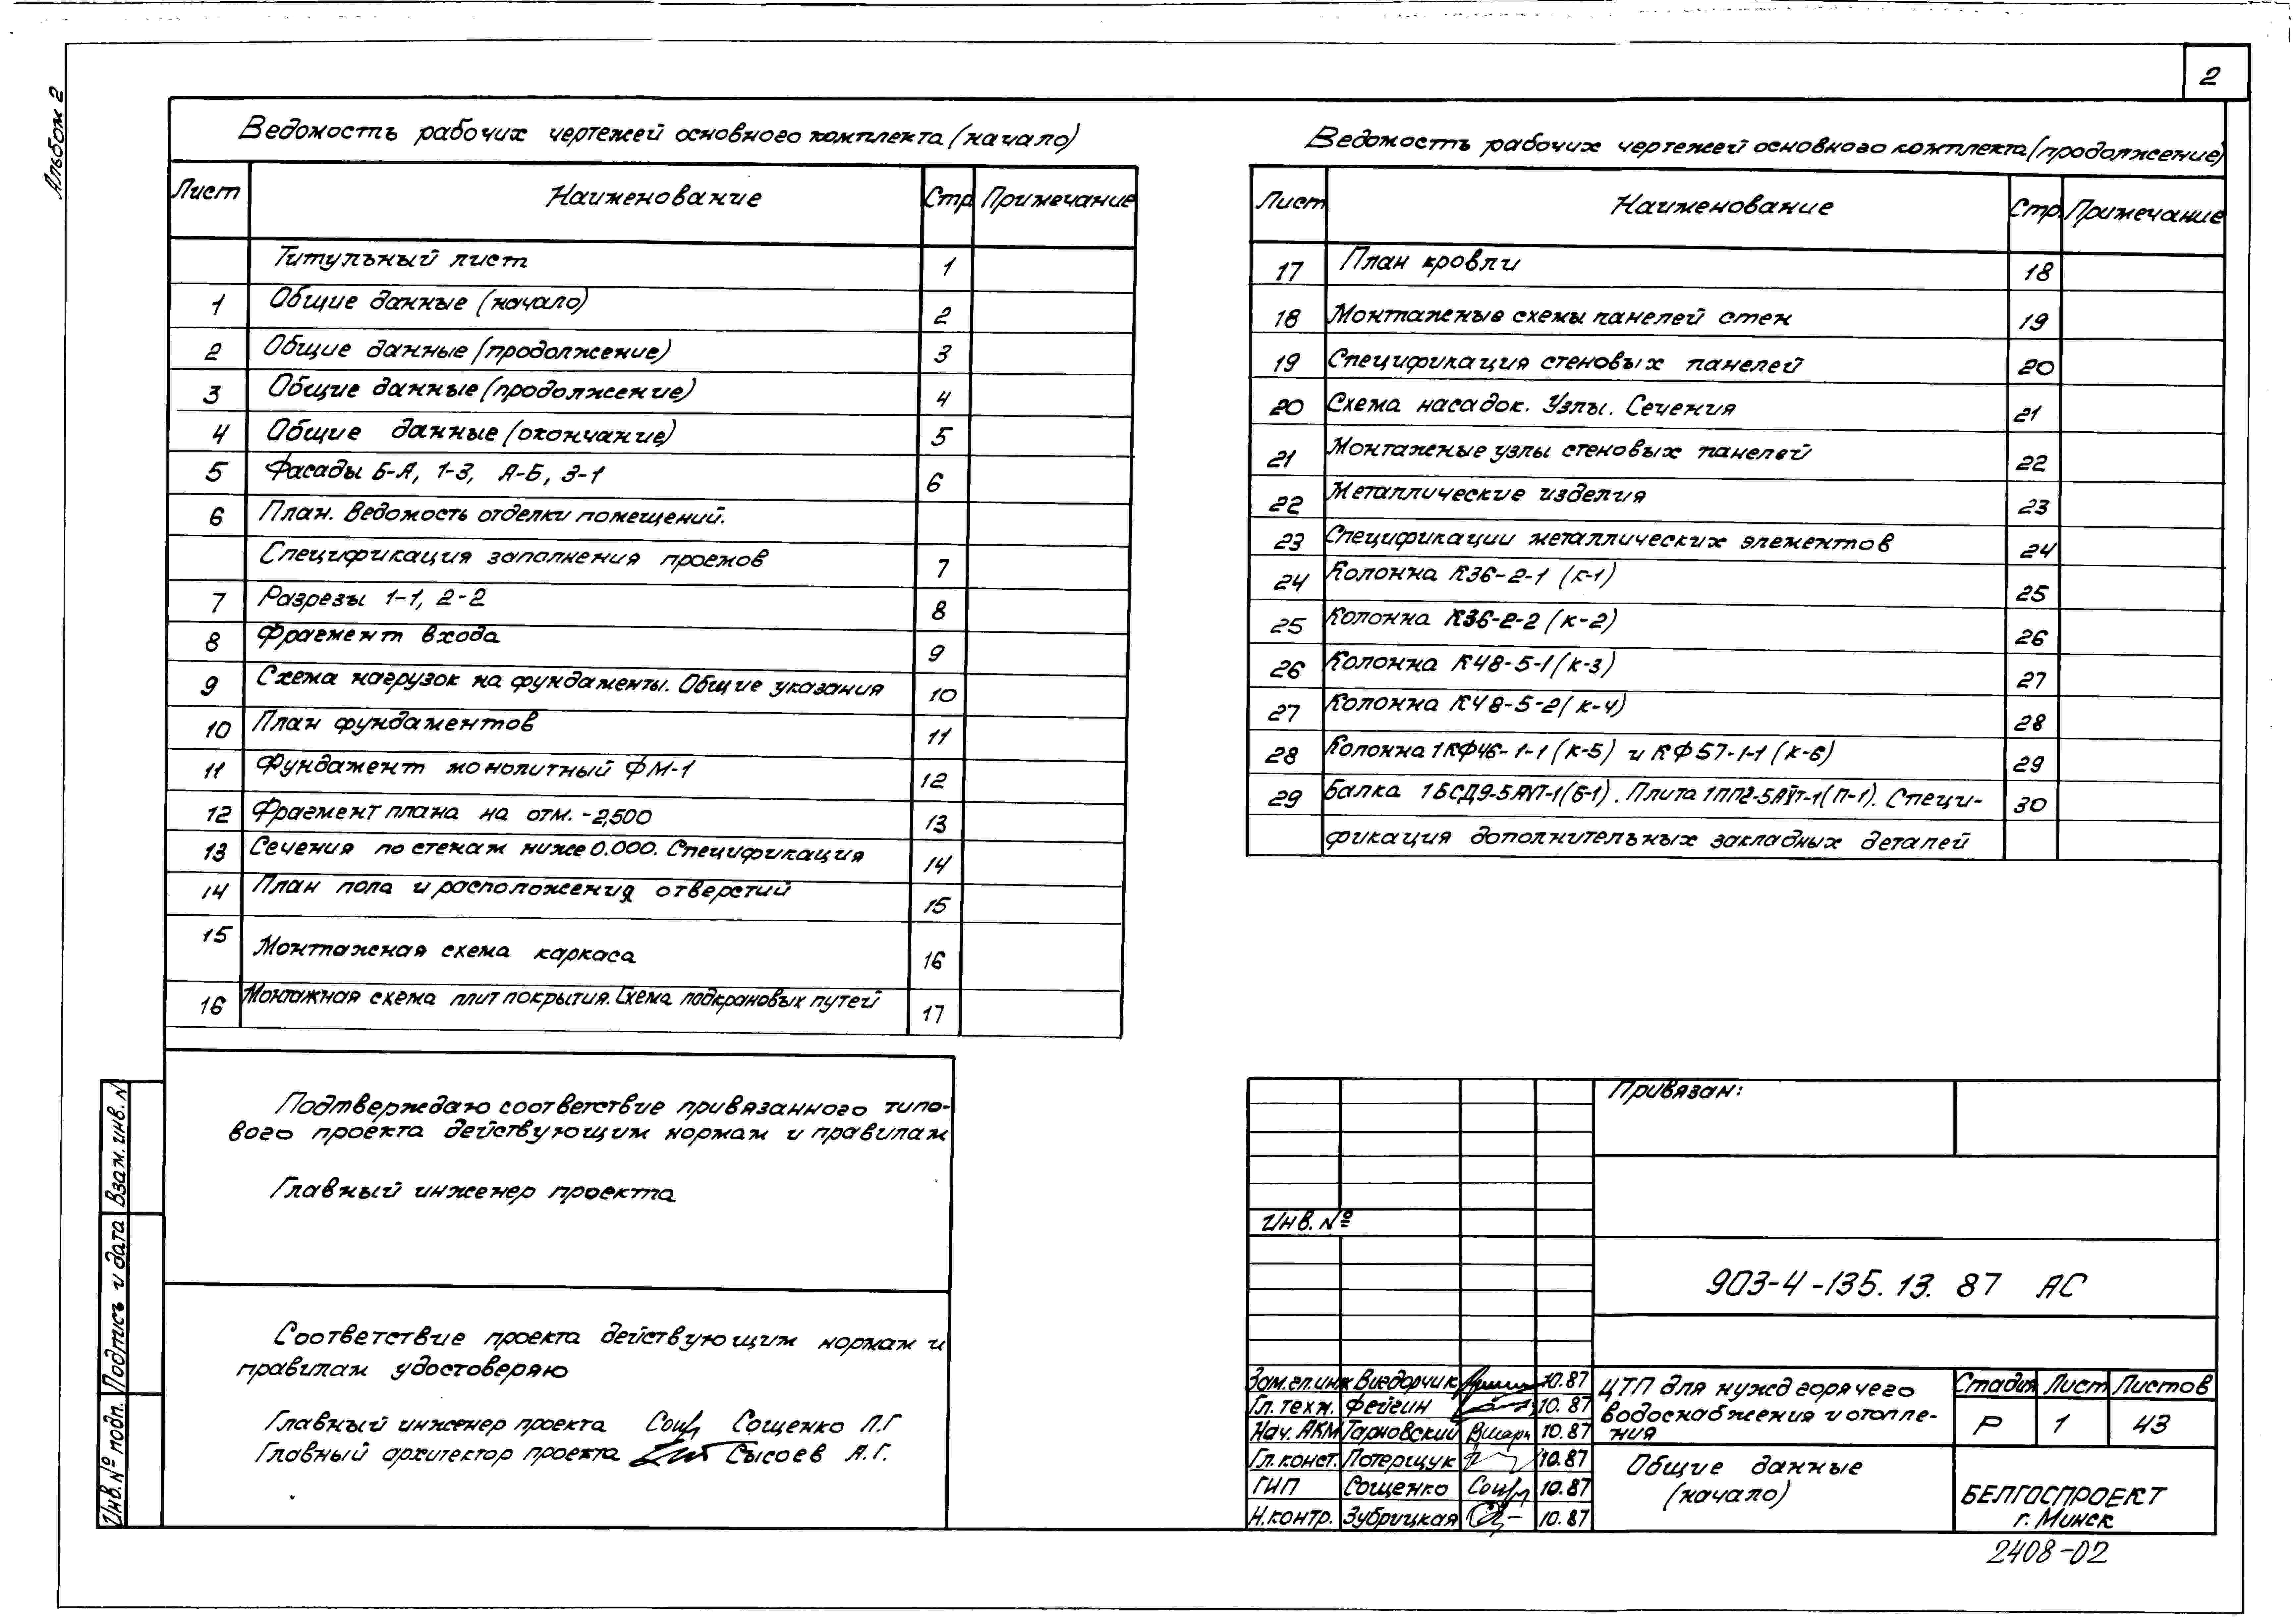 2
Альбом 2
Ведомость рабочих чертежей основного комплекта (начало)
Лист Наименование Стр. Примечание
Титульный лист 1
1 Общие данные (начало) 2
2 Общие данные (продолжение) 3
3 Общие данные (продолжение) 4
4 Общие данные (окончание) 5
5 Фасады Б-А, 1-3, А-Б, 3-1 6
6 План. Ведомость отделки помещений.
Спецификация заполнения проемов 7
7 Разрезы 1-1, 2-2 8
8 Фрагмент входа 9
9 Схема нагрузок на фундаменты. Общие указания 10
10 План фундаментов 11
11 Фундамент монолитный ФМ-1 12
12 Фрагмент плана на отм. -2,500 13
13 Сечения по стенам ниже 0.000. Спецификация 14
14 План пола и расположения отверстий 15
15 Монтажная схема каркаса 16
16 Монтажная схема плит покрытия. Схема подкрановых путей 17
Ведомость рабочих чертежей основного комплекта (продолжение)
Лист Наименование Стр. Примечание
17 План кровли 18
18 Монтажные схемы панелей стен 19
19 Спецификация стеновых панелей 20
20 Схема насадок. Узлы. Сечения 21
21 Монтажные узлы стеновых панелей 22
22 Металлические изделия 23
23 Спецификации металлических элементов 24
24 Колонна К36-2-1 (к-1) 25
25 Колонна К36-2-2 (к-2) 26
26 Колонна К48-5-1 (к-3) 27
27 Колонна К48-5-2 (к-4) 28
28 Колонна 1КФ46-1-1 (к-5) и КФ57-1-1 (к-6) 29
29 Балка 1БСД9-5АVТ-1 (Б-1). Плита 1ПП2-5АVТ-1 (П-1). Специ- 30
фикация дополнительных закладных деталей
Подтверждаю соответствие привязанного типо-
вого проекта действующим нормам и правилам
Главный инженер проекта
Соответствие проекта действующим нормам и
правилам удостоверяю
Главный инженер проекта Сощенко Л.Г
Главный архитектор проекта Сысоев А.Г.
Инв. № подп. Подпись и дата Взам. инв. N
Привязан:
Инв. №
903-4-135.13.87 АС
Зам. гл. инж Вигдорчик 10.87
Гл. техн. Фейгин 10.87
Нач. АКМ Тарновский 10.87
Гл. конст. Потерщук 10.87
ГИП Сощенко 10.87
Н. контр. Зубрицкая 10.87
ЦТП для нужд горячего
водоснабжения и отопле-
ния
Стадия Лист Листов
Р 1 43
Общие данные
(начало)
БЕЛГОСПРОЕКТ
г. Минск
2408-02